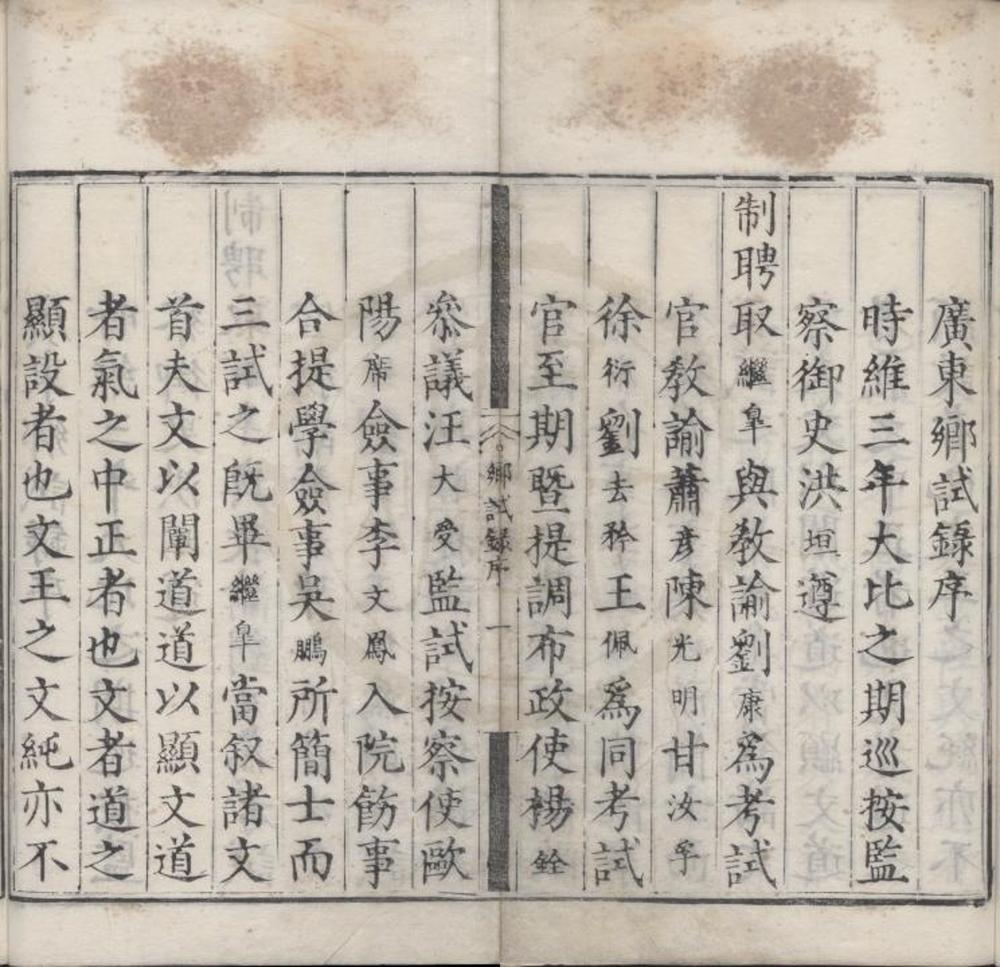 廣東鄉試錄序
時維三年大比之期巡按監
察御史洪垣遵
制聘取繼臯與教諭劉康爲考試
官教諭蕭彥陳光明甘汝孚
徐衍劉去矜王佩爲同考試
官至期暨提調布政使楊銓
鄉試錄序 一
叅議汪大受監試按察使歐
陽席僉事李文鳳入院飭事
合提學僉事吳鵬所簡士而
三試之旣畢繼臯當叙諸文
首夫文以闡道道以顯文道
者氣之中正者也文者道之
顯設者也文王之文純亦不